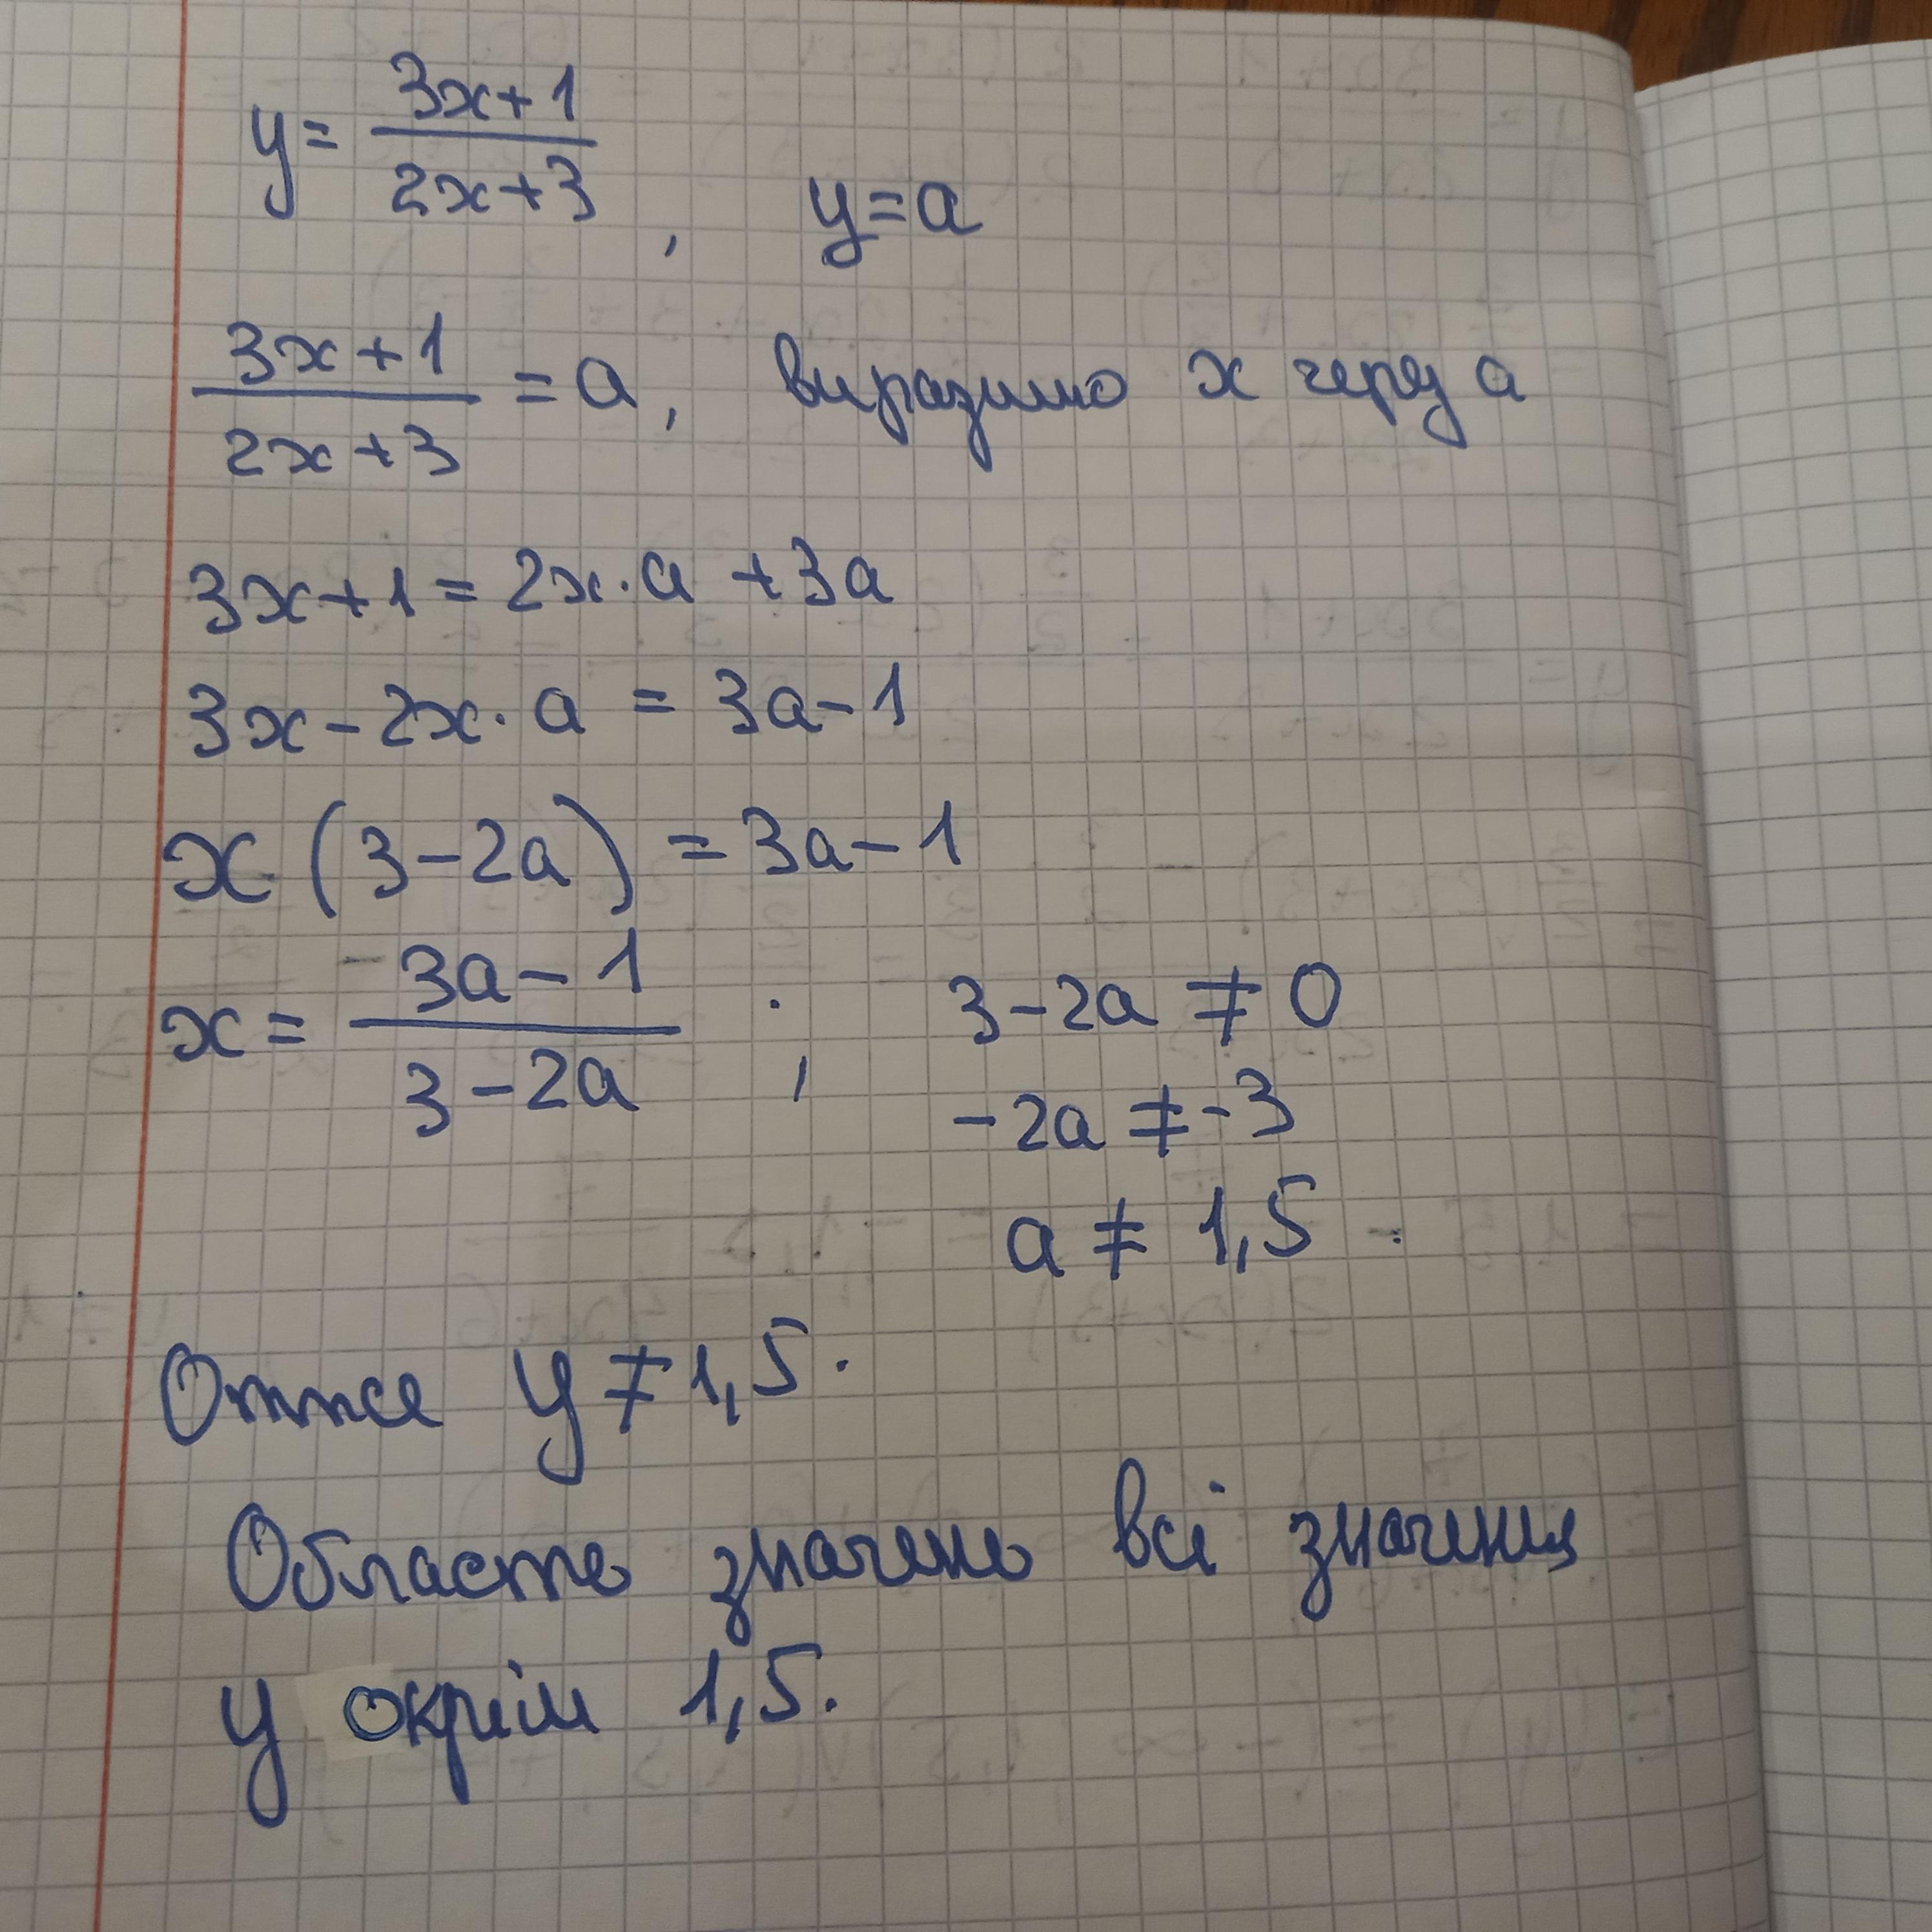 y = (3x+1)/(2x+3), y=a
(3x+1)/(2x+3) = a, виразимо x через a
3x+1 = 2x·a +3a
3x-2x·a = 3a-1
x(3-2a) = 3a-1
x = (3a-1)/(3-2a) ; 3-2a ≠ 0
-2a ≠ -3
a ≠ 1,5
Отже y ≠ 1,5.
Область значень всі значення
y окрім 1,5.